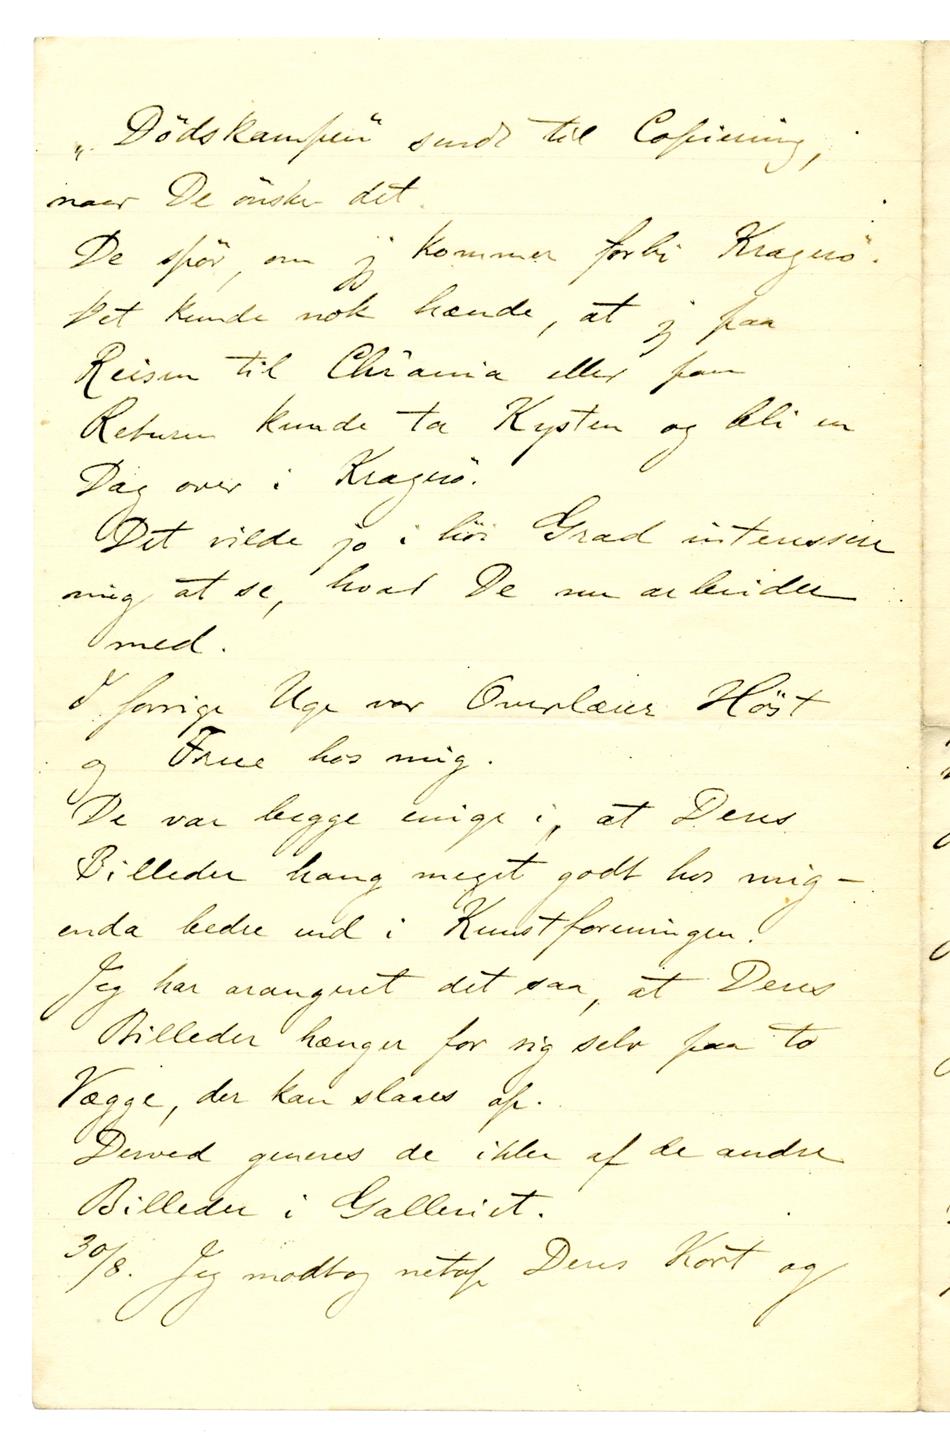 „Dödskampen“ sendt til Copiering,
naar De önsker det.
De spör, om jeg kommer forbi Kragerö.
Det kunde nok hænde, at jeg paa
Reisen til Chrania eller paa
Returen kunde ta Kysten og bli en
Dag over i Kragerö.
Det vilde jo i höi Grad interessere
mig at se, hvad De nu arbeider
med.
I forrige Uge var Overlærer Höst
og Frue hos mig.
De var begge enige i, at Deres
Billeder hang meget godt hos mig –
enda bedre end i Kunstforeningen.
Jeg har arangeret det saa, at Deres
Billeder hænger for sig selv paa to
Vægge, der kan slaaes op.
Derved generes de ikke af de andre
Billeder i Galleriet.
30/8. Jeg modtog netop Deres Kort og